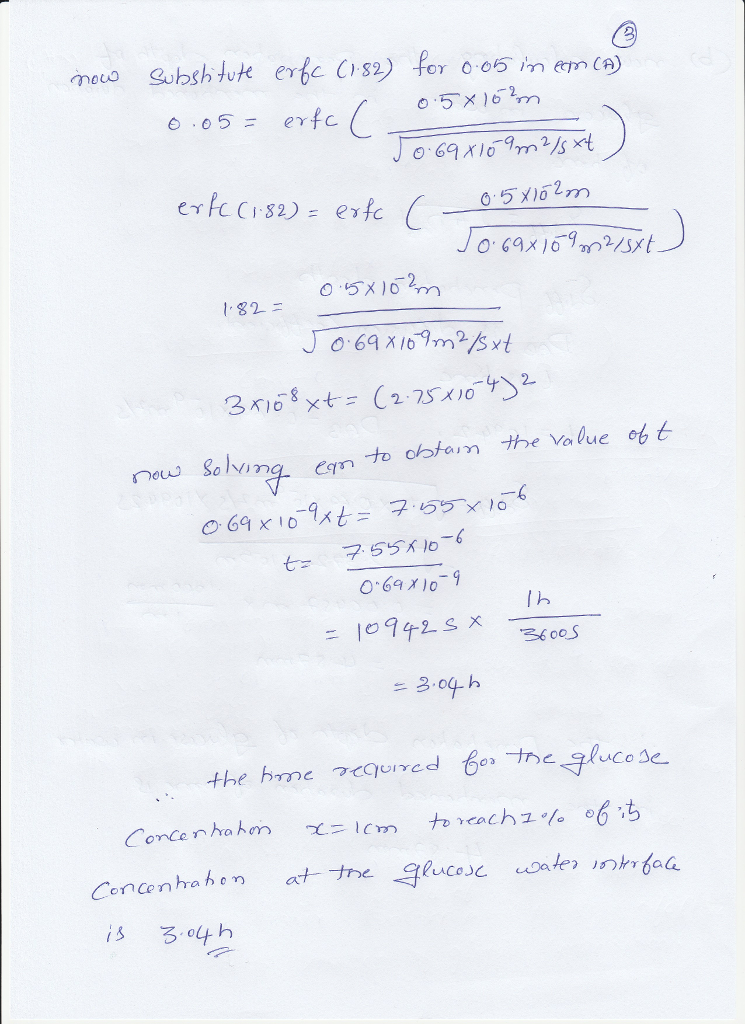 ③
now substitute erfc (1.82) for 0.05 in eqn (A)
0.05 = erfc ( 0.5 × 10⁻²m / √0.69×10⁻⁹m²/s×t )
erfc (1.82) = erfc ( 0.5×10⁻²m / √0.69×10⁻⁹m²/s×t )
1.82 = 0.5×10⁻²m / √0.69×10⁻⁹m²/s×t
3×10⁻⁸×t = (2.75×10⁻⁴)²
now solving eqn to obtain the value of t
0.69×10⁻⁹×t = 7.55×10⁻⁶
t = 7.55×10⁻⁶ / 0.69×10⁻⁹
= 10942 s × 1h / 3600s
= 3.04h
∴ the time required for the glucose
Concentration x=1cm to reach 1% of its
Concentration at the glucose water interface
is 3.04h